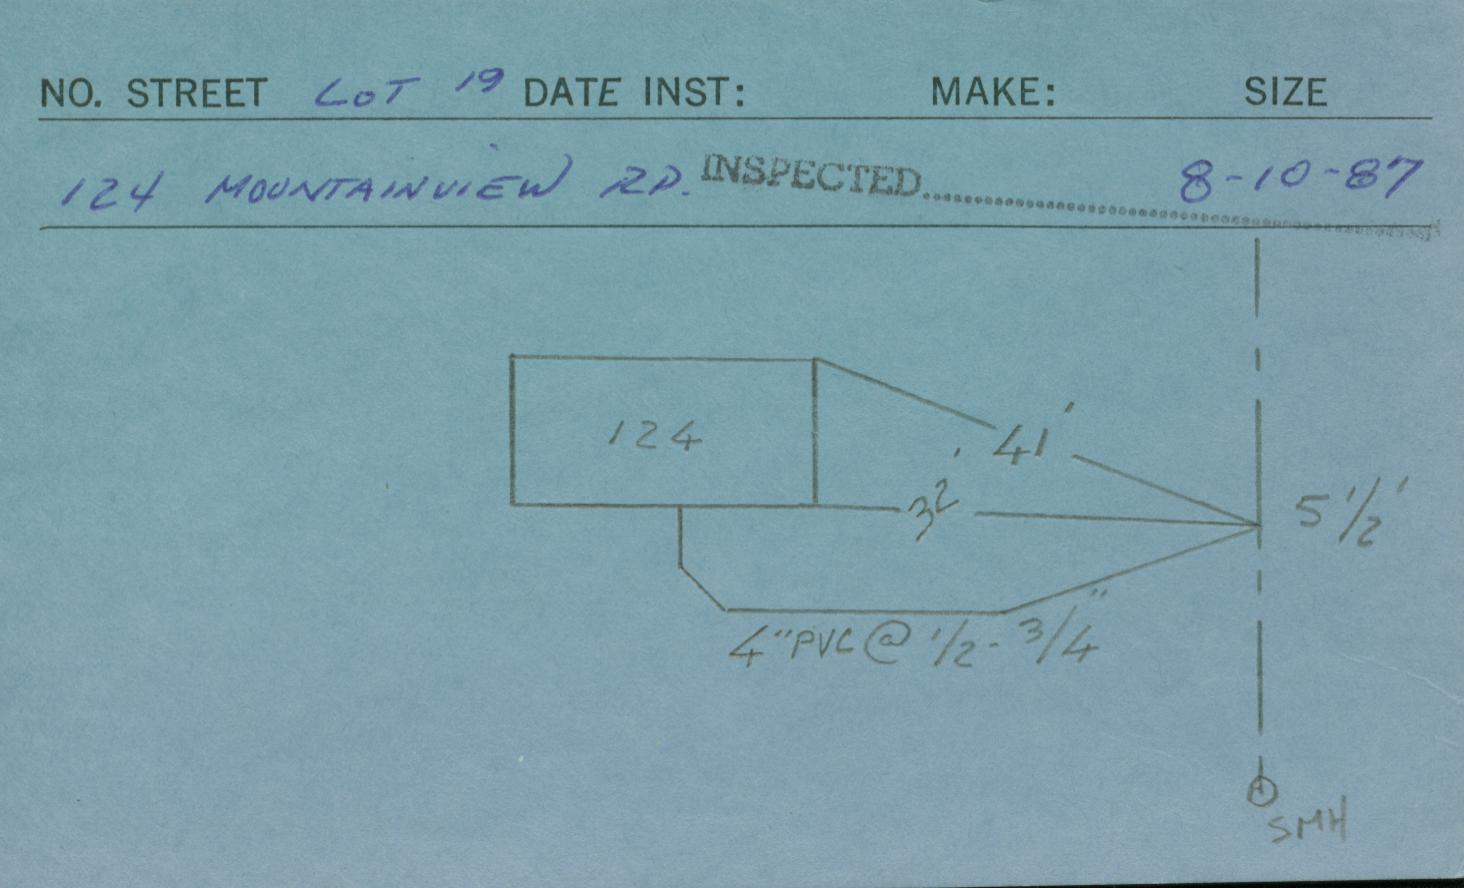 NO. STREET LOT 19 DATE INST: MAKE: SIZE
124 MOUNTAINVIEW RD. INSPECTED 8-10-87
124
41'
32'
5 1/2'
4" PVC @ 1/2 - 3/4"
SMH